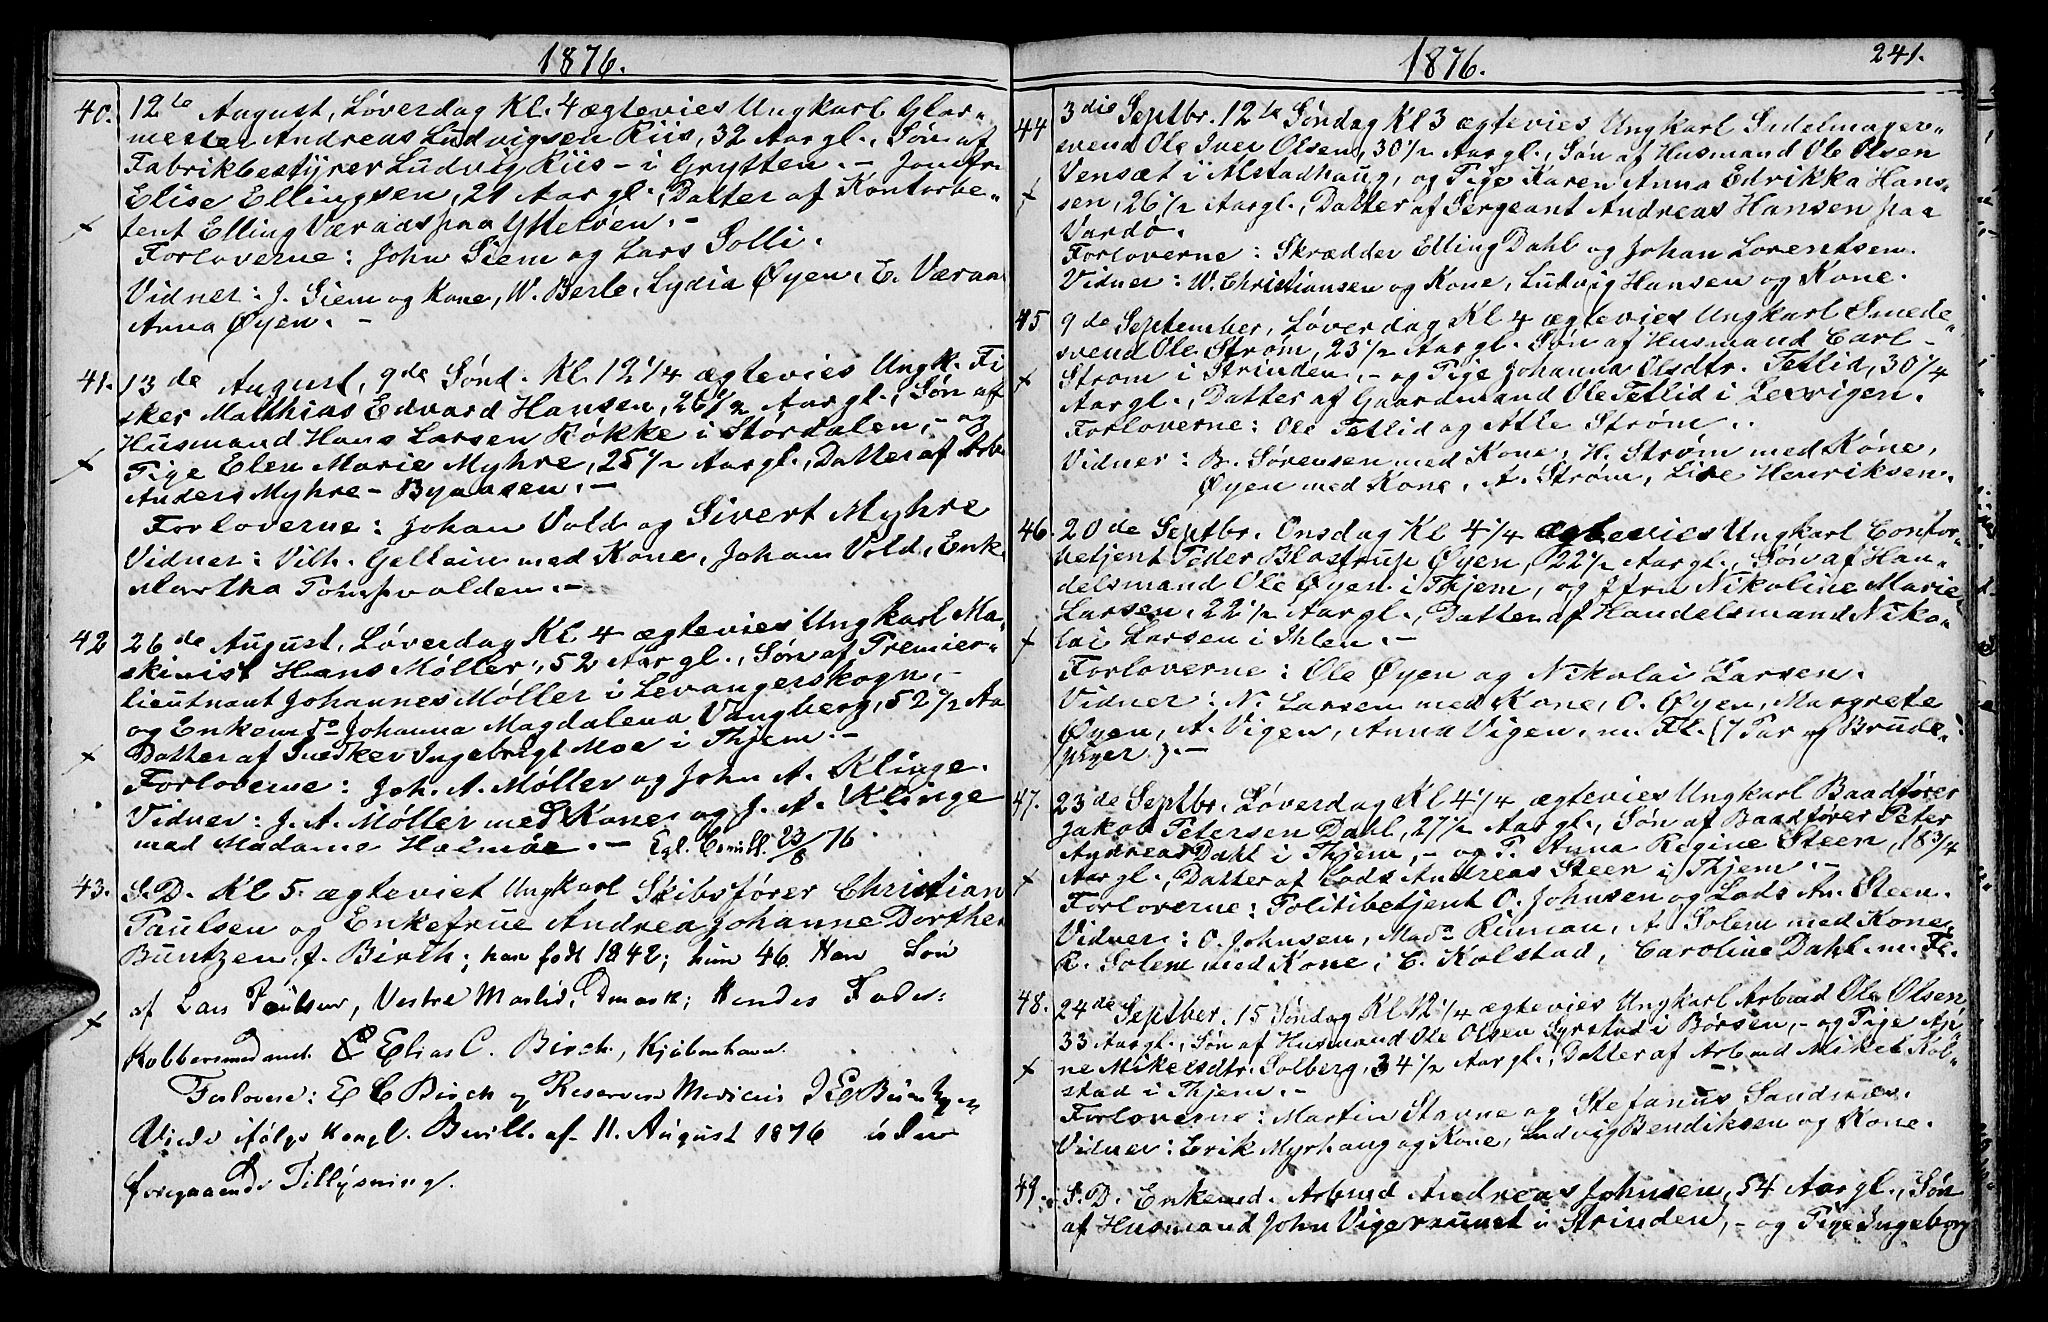 1876.
40. 12te August, Løverdag Kl. 4 ægtevies Ungkarl Glar-
mester Andreas Ludvigsen Riis, 32 Aar gl., Søn af
Fabrikbestyrer Ludvig Riis - i Grytten. - Jomfr.
Elise Ellingsen, 21 Aar gl., Datter af Kontorbe-
tent Elling Væraas paa Ytterøen. -
Forloverne: John Siem og Lars Solli.
Vidner: J. Siem og Kone, W. Berle, Lydia Øyen, E. Væraa
Anna Øyen. -
41. 13de August, 9de Sønd. Kl. 12 1/4 ægtevies Ungk. Fi
sker Matthias Edvard Hansen, 26 1/2 Aar gl., Søn af
Husmand Hans Larsen Røkke i Størdalen, - og
Pige Elen Marie Myhre, 25 1/2 Aar gl., Datter af Arb.
Anders Myhre - Byaasen. -
Forloverne: Johan Vold og Sivert Myhre
Vidner: Vilh. Gellein med Kone, Johan Vold, Enke
Martha Tømpvolden. -
42 26de August, Løverdag Kl. 4 ægtevies Ungkarl Ma-
skinist Hans Møller, 52 Aar gl., Søn af Premier-
lieutnant Johannes Møller i Levangerskogn, -
og Enkemdo Johanna Magdalena Vangberg, 52 1/2 Aa
Datter af Snedker Ingebrigt Moe i Thjem. -
Forloverne: Joh. A. Møller og John A. Klinge.
Vidner: J. A. Møller med Kone og J. A. Klinge
med Madame Holmøe. - Kgl. Bevill. 23/8 76
43. S. D. Kl 5. ægteviet Ungkarl Skibsfører Christian
Paulsen og Enkefrue Andrea Johanne Dorthea
Buntzen, f. Birch; han født 1842; hun 46. Han Søn
af Lars Paulsen, Vestre Marlid, Dmark; Hendes Fader:
Kobbersmedmst. E Elias C. Birch, Kjøbenhavn.
Forlovere: E C Birch og Reserve Medicus J E Buntzen
Viede ifølge kongl. Bevill. af 11. August 1876 uden
foregaaende Tillysning.
1876. 241.
44 3die Septbr. 12te Søndag Kl 3 ægtevies Ungkarl Sadelmager-
svend Ole Iver Olsen, 30 1/2 Aar gl., Søn af Husmand Ole Olsen
Vensæt i Alstadhaug, og Pige Karen Anna Edrikka Hans-
sen, 26 1/2 Aar gl., Datter af Sergeant Andreas Hansen paa
Vardø.
Forloverne: Skrædder Elling Dahl og Johan Lorentsen.
Vidner: W. Christiansen og Kone, Ludvig Hansen og Kone.
45 9de September, Løverdag Kl 4 ægtevies Ungkarl Smede-
svend Ole Strøm, 23 1/2 Aar gl. Søn af Husmand Carl -
Strøm i Strinden, - og Pige Johanna Olsdtr. Tetlid, 30 1/4
Aar gl., Datter af Gaardmand Ole Tetlid i Lexvigen.
Forloverne: Ole Tetlid og Atle Strøm.
Vidner: B. Sørensen med Kone, H. Strøm med Kone,
Øyen med Kone, A. Strøm, Lise Henriksen.
46. 20de Septbr. Onsdag Kl 4 1/4 ægtevies Ungkarl Contor-
betjent Peder Blostrup Øyen, 22 1/2 Aar gl., Søn af Han-
delsmand Ole Øyen i Thjem, og Jfru Nikoline Marie
Larsen, 22 1/2 Aar gl., Datter af Handelsmand Niko-
lai Larsen i Ihlen. -
Forloverne: Ole Øyen og Nikolai Larsen.
Vidner: N. Larsen med Kone, O. Øyen, Margrete
Øyen, A. Vigen, Anna Vigen, m. Fl. (7 Par og Brude-
piger). -
47. 23de Septbr. Løverdag Kl 4 1/4 ægtevies Ungkarl Baadfører
Jakob Petersen Dahl, 27 1/2 Aar gl., Søn af Baadfører Peter
Andreas Dahl i Thjem, - og P. Anna Regine Steen, 18 3/4
Aar gl., Datter af Lods Andreas Steen i Thjem. -
Forloverne: Politibetjent O. Johnsen og Lods An. Steen.
Vidner: O. Johnsen, Mada Ruman, A Solem med Kone,
R. Solem med Kone, C. Kolstad, Caroline Dahl m. Fl.
48. 24de Septber. 15 Søndag Kl 12 1/4 ægtevies Ungkarl Arbmd Ole Olsen
33 Aar gl., Søn af Husmand Ole Olsen Syrstad i Børsen, - og Pige An-
ne Mikelsdtr. Solberg, 34 1/2 Aar gl., Datter af Arbmd Mikel Kol-
stad i Thjem. -
Forloverne: Martin Stavne og Stefanus Sandnæs.
Vidner: Erik Myrhaug og Kone, Ludvig Bendiksen og Kone.
49. S. D. Enkemd. Arbmd Andreas Johnsen, 54 Aar gl., Søn
af Husmand John Vigersunet i Strinden, - og Pige Ingeborg